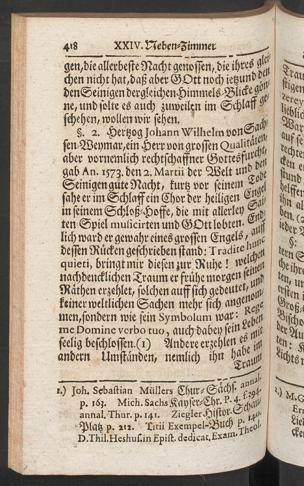 418 XXIV. Neben-Zimmer
gen, die allerbeste Nacht genossen, die ihres glei-
chen nicht hat, daß aber GOtt noch jetzund den
den Seinigen dergleichen Himmels-Blicke gön-
ne, und solte es auch zuweilen im Schlaff ge-
schehen, wollen wir sehen.
§. 2. Hertzog Johann Wilhelm von Sach-
sen-Weymar, ein Herr von grossen Qualitäten,
aber vornemlich rechtschaffner Gottesfurcht,
gab An. 1573. den 2. Martii der Welt und den
Seinigen gute Nacht, kurtz vor seinem Tode
sahe er im Schlaff ein Chor der heiligen Engel
in seinem Schloß-Hoffe, die mit allerley Sai-
ten Spiel musicirten und GOtt lobten. End-
lich ward er gewahr eines grossen Engels, auff
dessen Rücken geschrieben stand: Tradite hunc
quieti, bringt mir diesen zur Ruhe! welchen
nachdencklichen Traum er frühe morgen seinen
Räthen erzehlet, solchen auff sich gedeutet, und
keiner weltlichen Sachen mehr sich angenom-
men, sondern wie sein Symbolum war: Rege
me Domine verbo tuo, auch dabey sein Leben
seelig beschlossen. (1) Andere erzehlen es mit
andern Umständen, nemlich ihn habe im
Traum
1.) Joh. Sebastian Müllers Chur-Sächs. annal.
p. 163. Mich. Sachs Kayser-Chr. P. 4. f. 294.
annal. Thur. p. 141. Ziegler. Histor. Schau-
Platz p. 212. Titii Exempel-Buch p. 140.
D. Thil. Heshus. in Epist. dedicat. Exam. Theol.